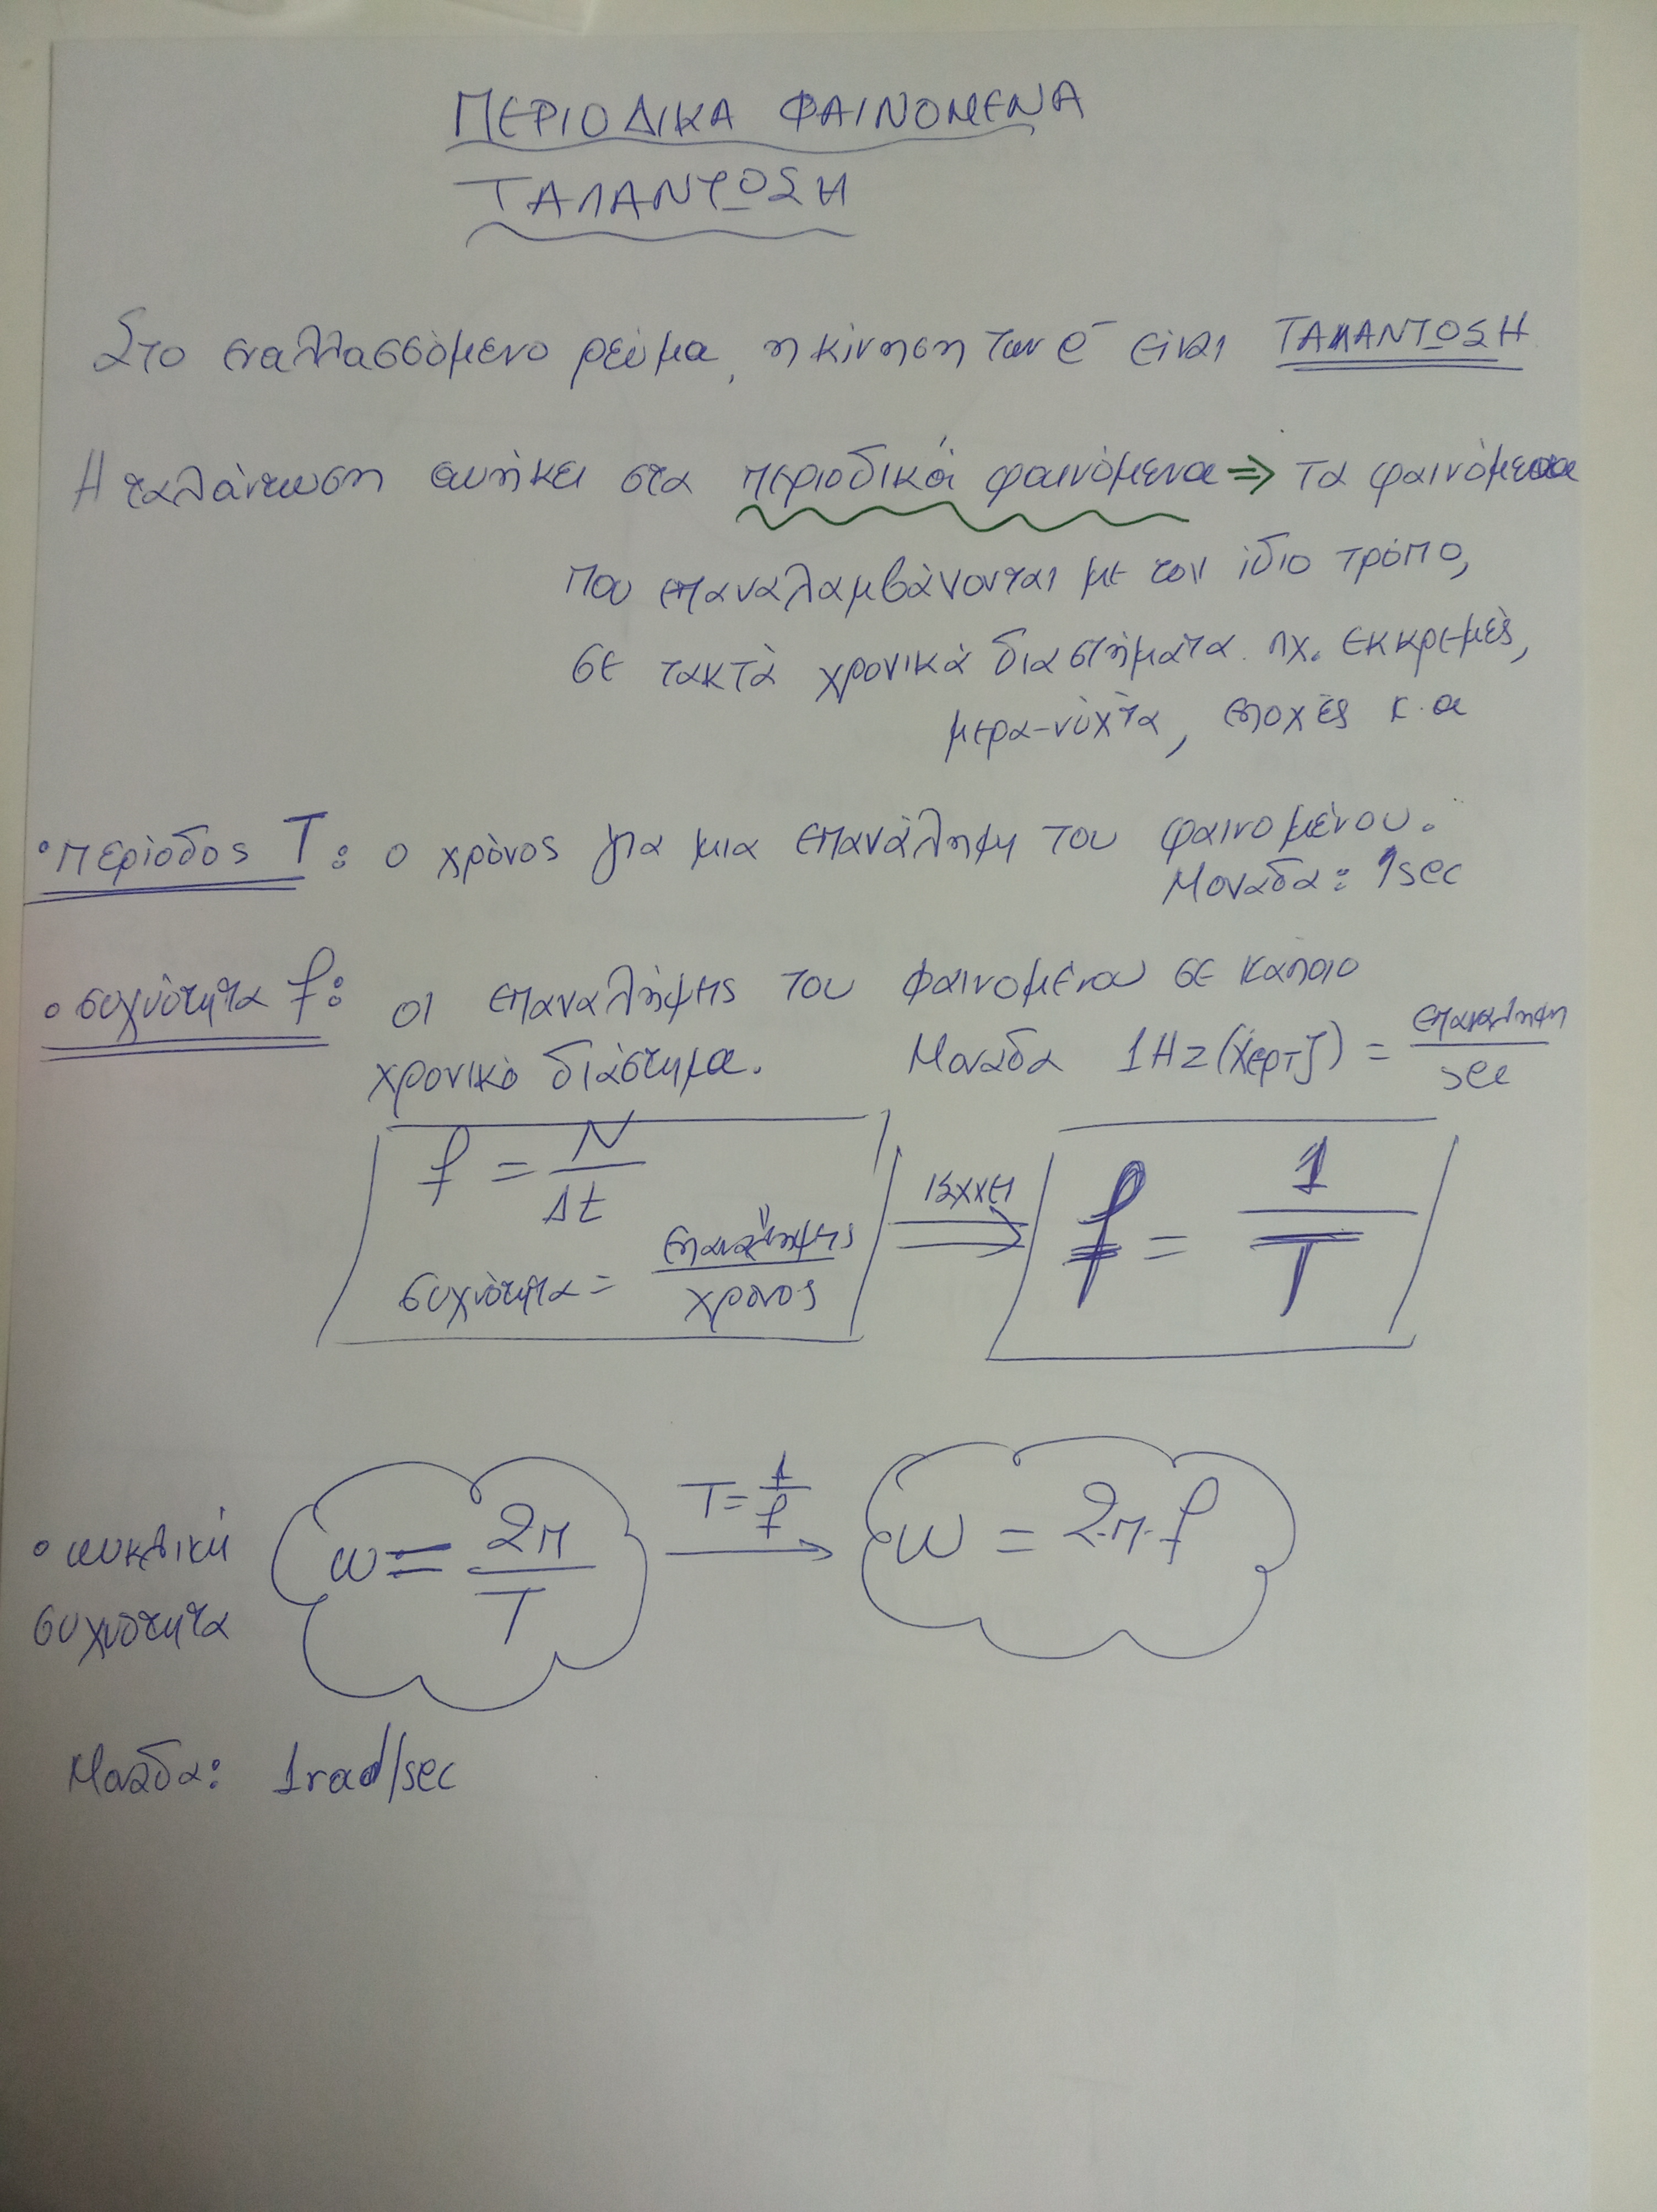 ΠΕΡΙΟΔΙΚΑ ΦΑΙΝΟΜΕΝΑ
ΤΑΛΑΝΤΩΣΗ
Στο εναλλασσόμενο ρεύμα, η κίνηση των e⁻ είναι ΤΑΛΑΝΤΩΣΗ
Η ταλάντωση ανήκει στα περιοδικά φαινόμενα ⇒ τα φαινόμενα
που επαναλαμβάνονται με τον ίδιο τρόπο,
σε τακτά χρονικά διαστήματα πχ. εκκρεμές,
μερα-νύχτα, εποχές κ.α
• περίοδος T: ο χρόνος για μια επανάληψη του φαινομένου.
Μονάδα: 1sec
• συχνότητα f: οι επαναλήψεις του φαινομένου σε κάποιο
χρονικό διάστημα. Μονάδα 1Hz (χερτζ) = επανάληψη / sec
f = N / Δt
συχνότητα = επαναλήψεις / χρόνος
ισχύει ⇒ f = 1 / T
• κυκλική συχνότητα
ω = 2π / T
T = 1 / f → ω = 2·π·f
Μονάδα: 1rad/sec